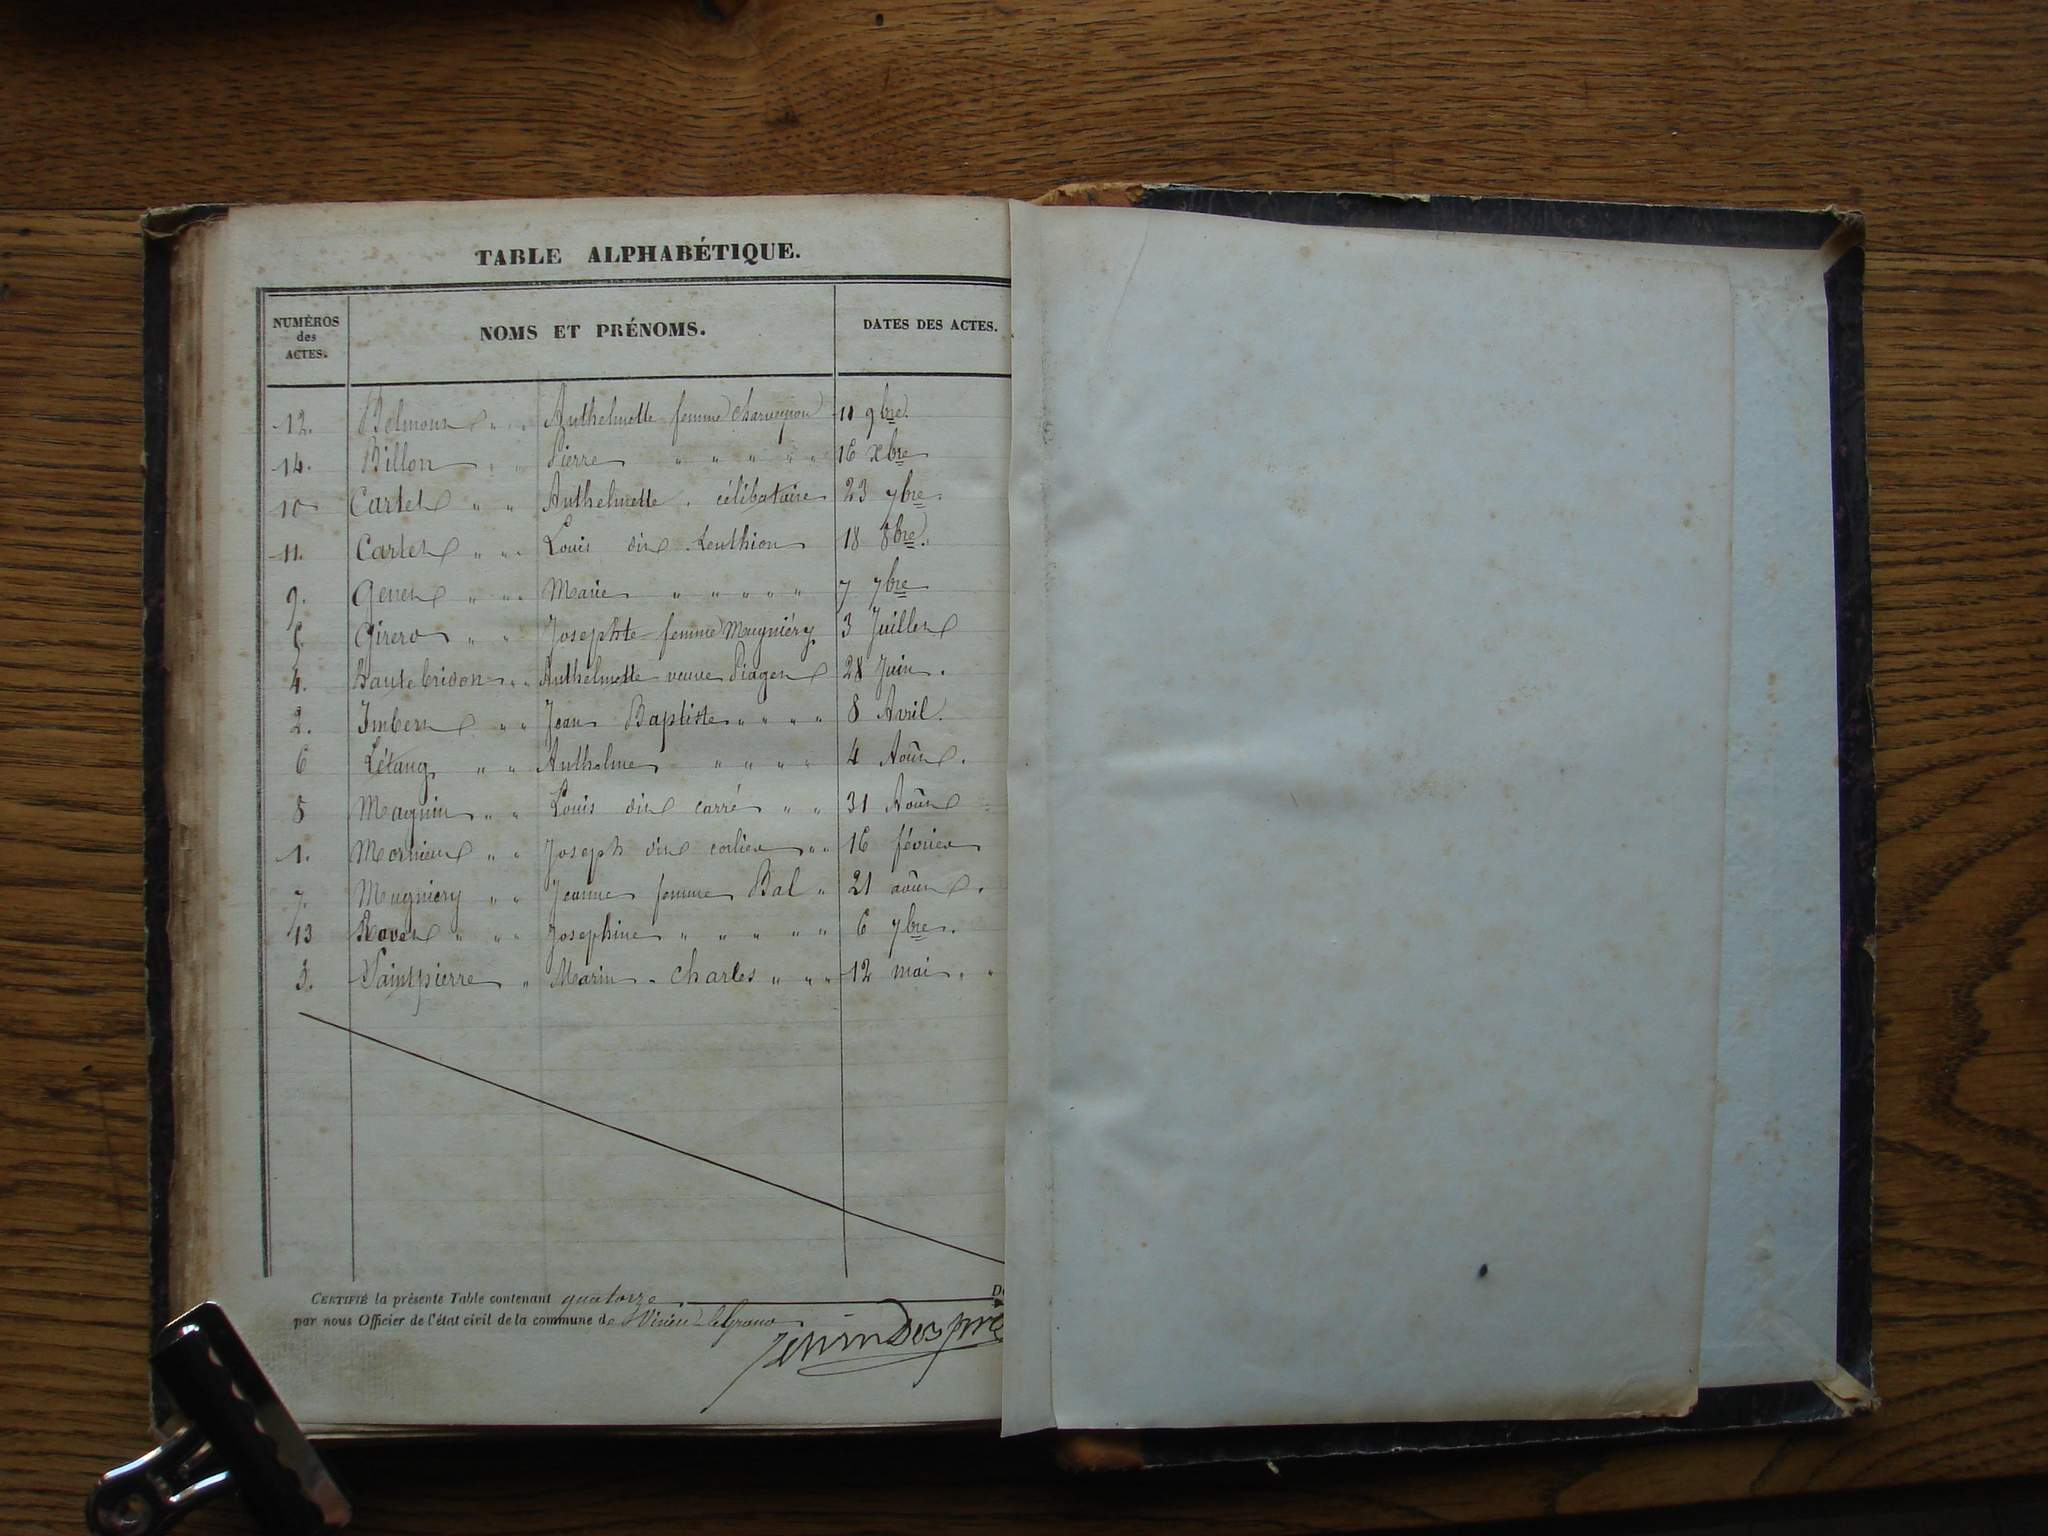 TABLE ALPHABÉTIQUE.
NUMÉROS des ACTES. NOMS ET PRÉNOMS. DATES DES ACTES.
12. Belmont " " Anthelmette femme Charveyron 11 9bre.
14. Billon " " Pierre " " " " " 16 xbre
10 Cartet " " Anthelmette. célibataire 23 7bre.
11. Cartet " " Louis dit 18 8bre.
9. Genet " " Marie " " " " " 7 7bre
Girerd " " Josephte femme Mugniéry 3 Juillet
4. hautebridon " " Anthelmette veuve Piaget 28 Juin.
2. Imbert " " Jean Baptiste " " " " 8 Avril.
6 Létang " " Anthelme " " " " 4 Août.
8 Magnin " " Louis dit carré " " 31 Août
1. Mornieux " " Joseph dit " " 16 février
7. Mugniery " " Jeanne femme Bal " 21 août.
13 Ravet " " Josephine " " " " " 6 7bre.
3. Saintpierre " Marin. Charles " " " 12 mai. "
CERTIFIÉ la présente Table contenant quatorze
par nous Officier de l'état civil de la commune de Virieu le Grand